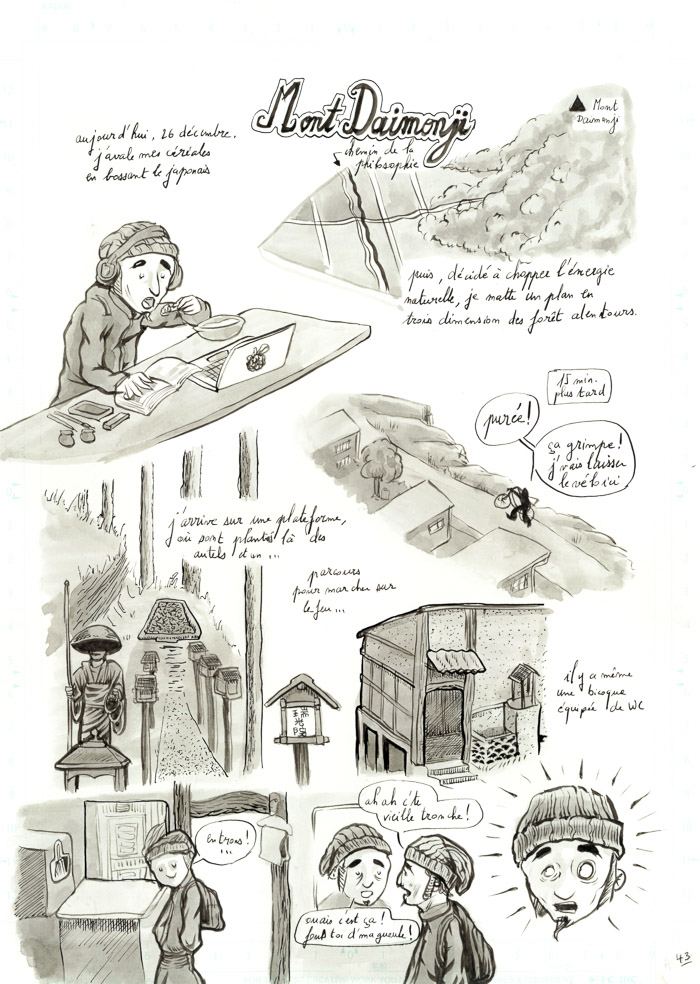 Mont Daimonji
Mont
Daimonji
aujourd'hui, 26 décembre.
j'avale mes céréales
en bossant le japonais
chemin de la
philosophie
puis, décidé à choper l'énergie
naturelle, je matte un plan en
trois dimension des forêt alentours.
15 min.
plus tard
purée!
ça grimpe!
j'vais laisser
le vélo ici
j'arrive sur une plateforme,
où sont plantés là des
autels et un ...
parcours
pour marcher sur
le feu...
il y a même
une bicoque
équipée de WC
entrons!
...
ah ah c'te
vieille tronche!
ouais c'est ça!
fous toi d'ma gueule!
43